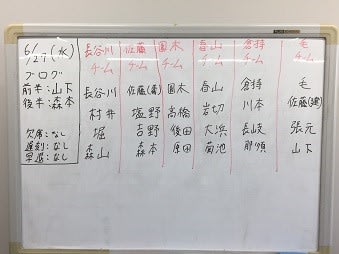 6/27(水)
ブログ
前半:山下
後半:森本
欠席:なし
遅刻:なし
早退:なし
長谷川チーム
長谷川
村井
堀
森山
佐藤チーム
佐藤(高)
塩野
吉野
森本
園木チーム
園木
高橋
後田
原田
春山チーム
春山
岩切
大浜
菊池
倉持チーム
倉持
川本
長岐
那須
毛チーム
毛
佐藤(建)
張元
山下